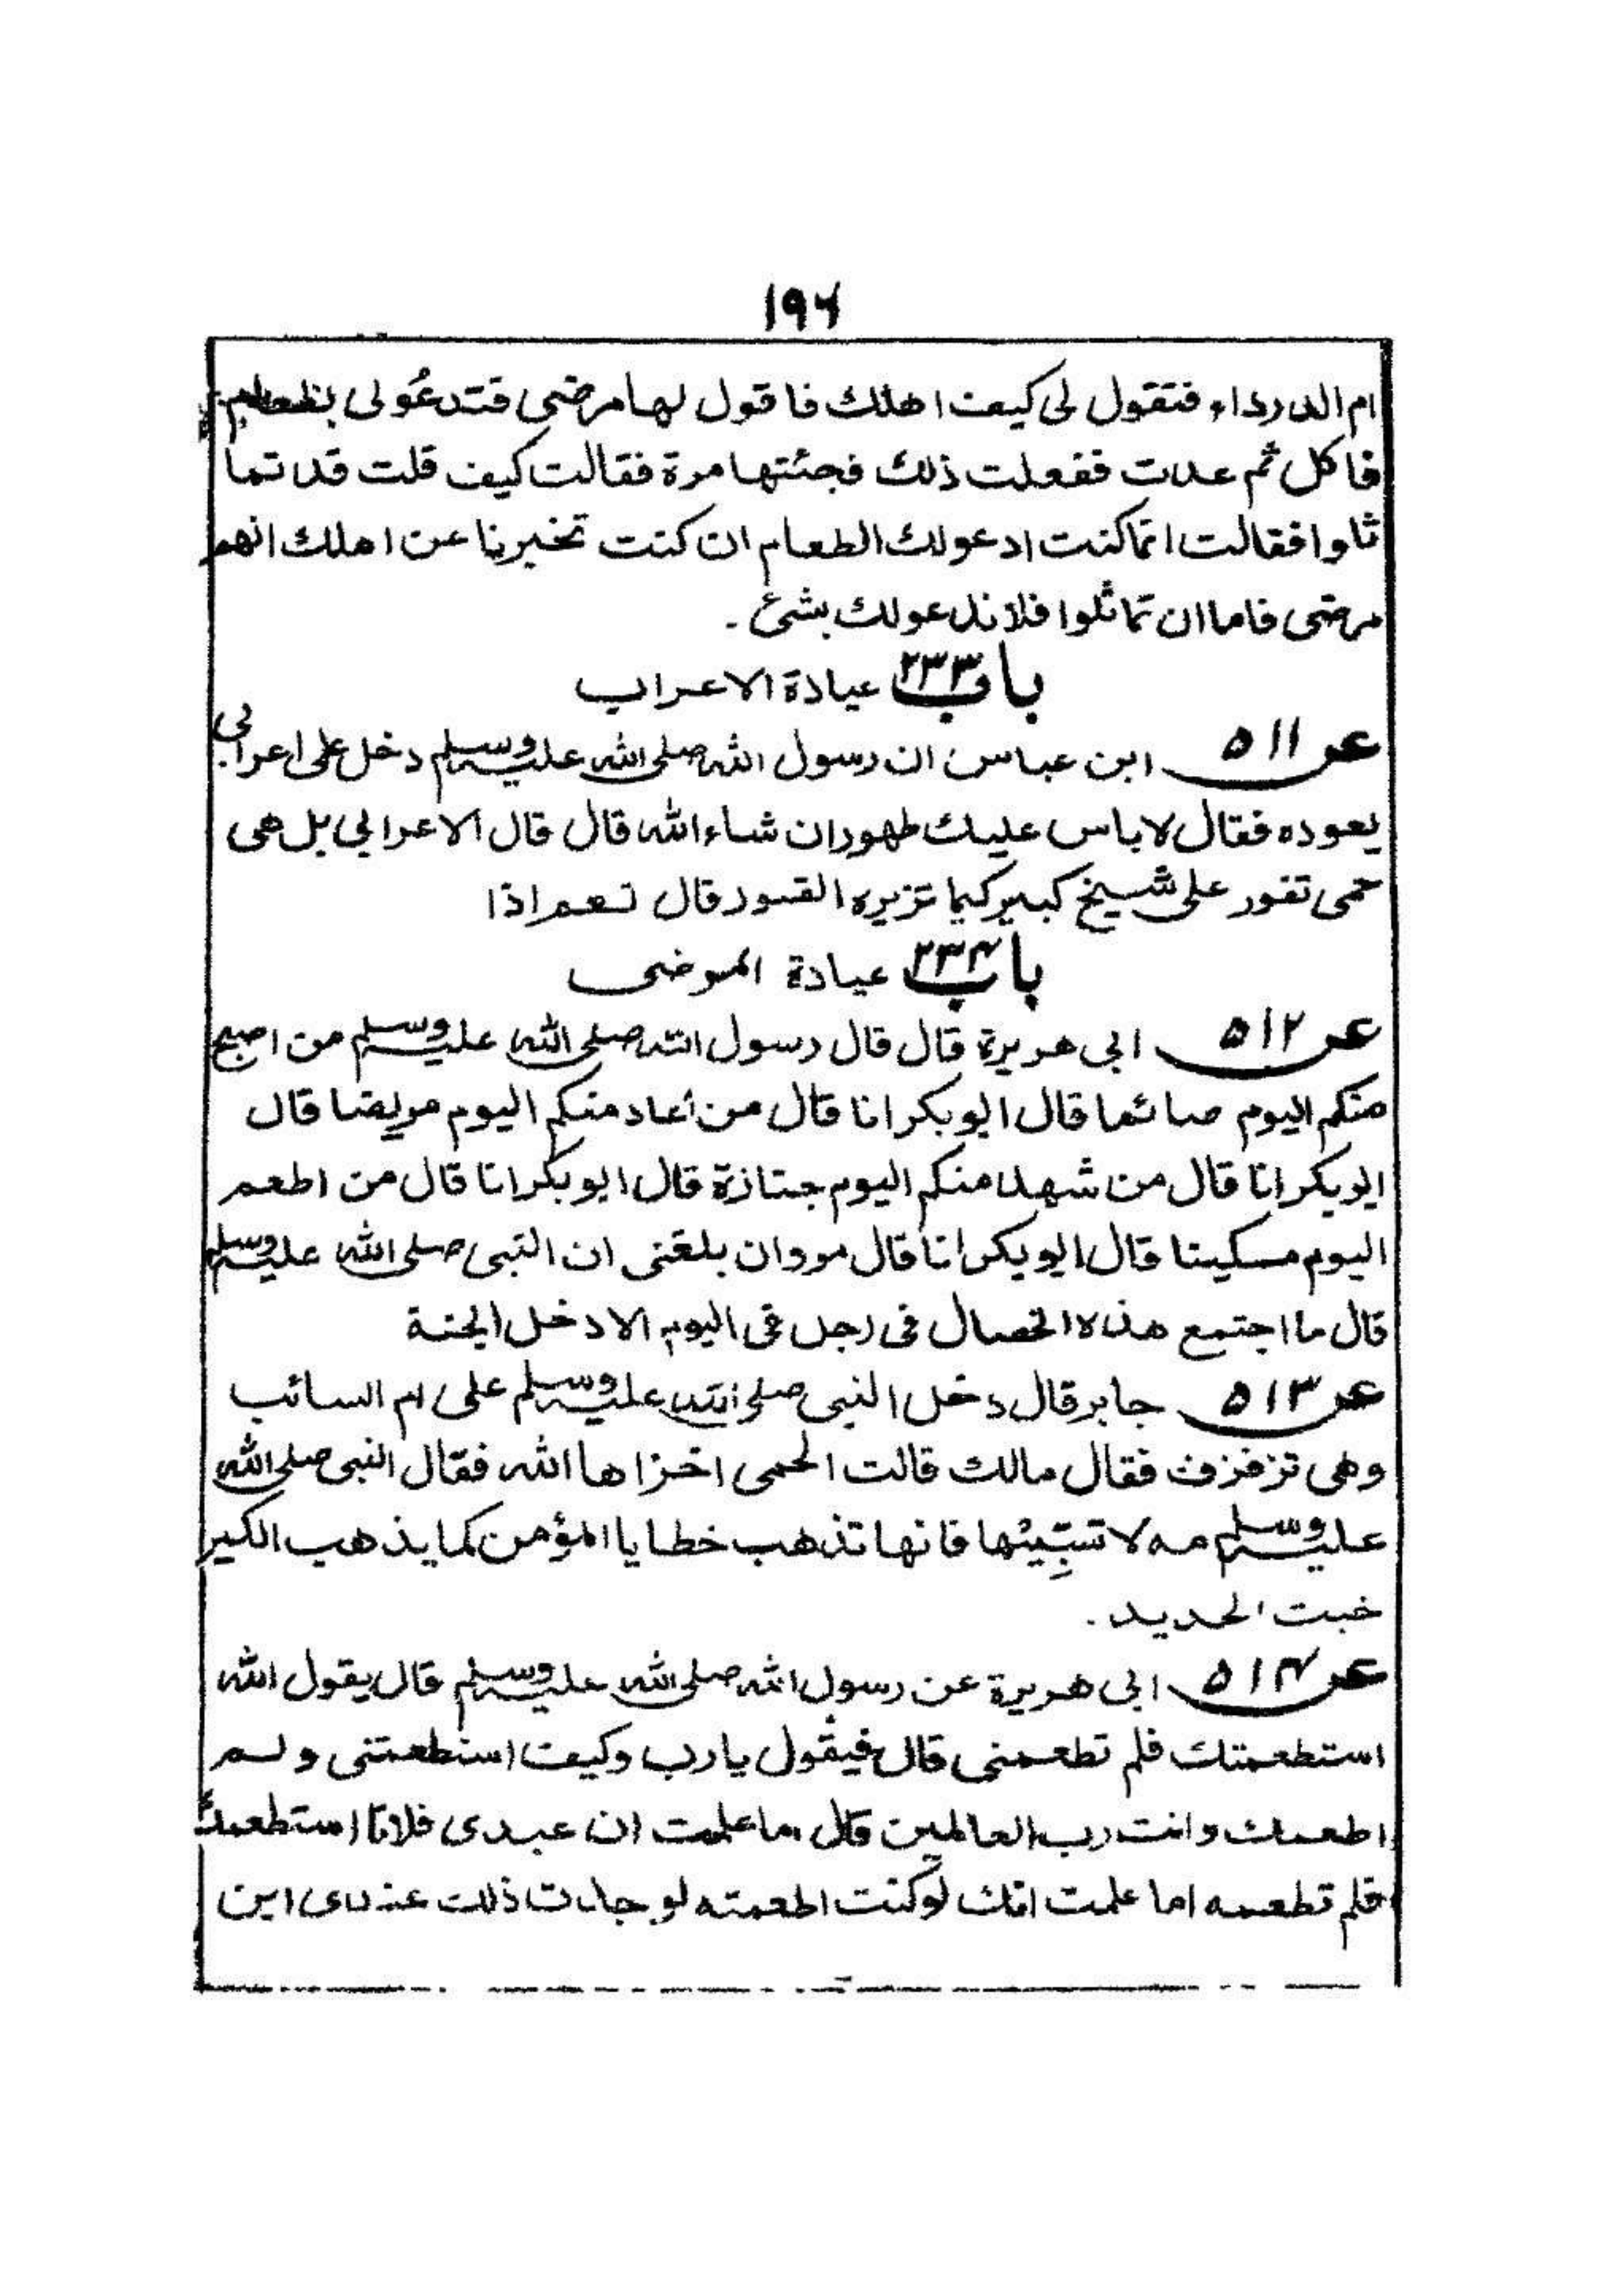 ۱۹۶
ام الدرداء فتقول لی کیف اهلك فاقول لها مرضی فتدعُولی بطعام
فاکل ثم عدت ففعلت ذلك فجئتها مرة فقالت کیف قلت قد تما
ثلوا فقالت انما کنت ادعولك الطعام ان کنت تخبرنا عن اهلك انهم
مرضی فاما ان تماثلوا فلا ندعولك بشیٔ -
باب ۲۳۳ عیادة الاعراب
عن ۵۱۱ ابن عباس ان رسول الله صلی الله علیه وسلم دخل علی اعرابی
یعوده فقال لا باس علیك طهور ان شاء الله قال قال الاعرابی بل هی
حمی تفور علی شیخ کبیر کیما تزیره القبور قال نعم اذا
باب ۲۳۴ عیادة المرضی
عن ۵۱۲ ابی هریرة قال قال رسول الله صلی الله علیه وسلم من اصبح
منکم الیوم صائما قال ابو بکر انا قال من عاد منکم الیوم مریضا قال
ابو بکر انا قال من شهد منکم الیوم جنازة قال ابو بکر انا قال من اطعم
الیوم مسکینا قال ابو بکر انا قال مروان بلغنی ان النبی صلی الله علیه وسلم
قال ما اجتمع هذه الخصال فی رجل فی الیوم الا دخل الجنة
عن ۵۱۳ جابر قال دخل النبی صلی الله علیه وسلم علی ام السائب
وهی تزفزف فقال مالك قالت الحمی اخزاها الله فقال النبی صلی الله
علیه وسلم مه لا تسبّیها فانها تذهب خطایا المؤمن کما یذهب الکیر
خبث الحدید .
عن ۵۱۴ ابی هریرة عن رسول الله صلی الله علیه وسلم قال یقول الله
استطعمتك فلم تطعمنی قال فیقول یا رب وکیف استطعمتنی ولم
اطعمك وانت رب العالمین قال اما علمت ان عبدی فلانا استطعمك
فلم تطعمه اما علمت انك لو کنت اطعمته لوجدت ذلك عندی ابن